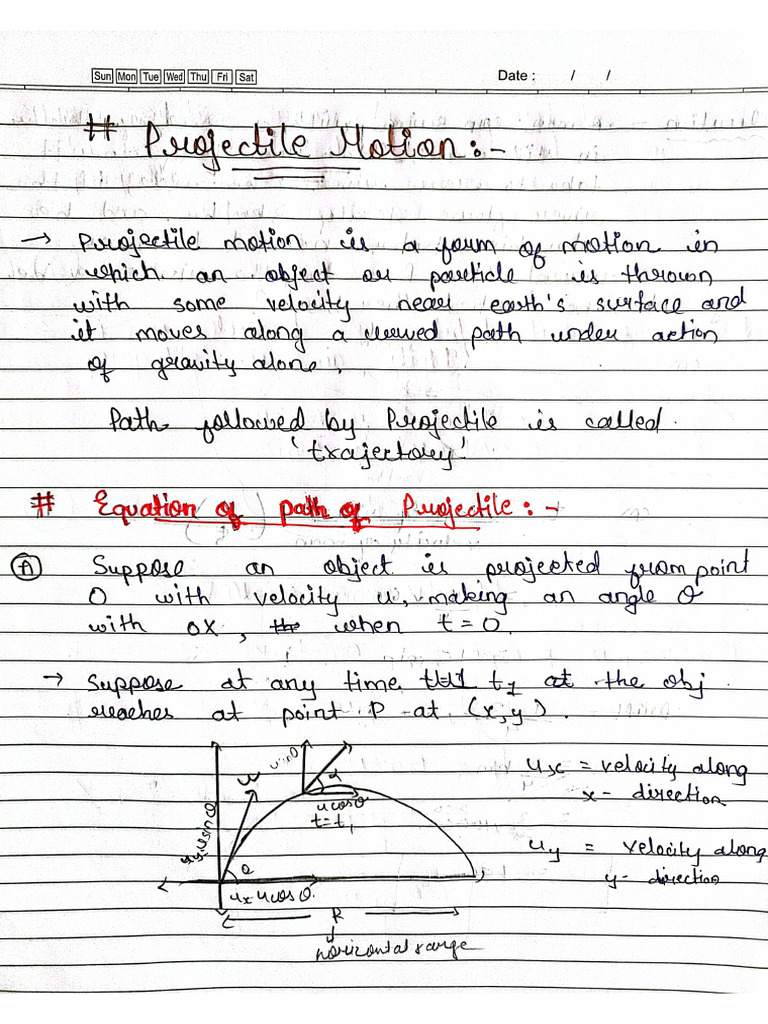 Sun Mon Tue Wed Thu Fri Sat Date : / /
# Projectile Motion:-
→ Projectile motion is a form of motion in
which an object or particle is thrown
with some velocity near earth's surface and
it moves along a curved path under action
of gravity alone.
Path followed by Projectile is called
'trajectory'
# Equation of path of Projectile:-
(A) Suppose an object is projected from point
O with velocity u, making an angle θ
with OX, when t=0.
→ Suppose at any time t₁ at the obj
reaches at point P at (x,y).
ux = velocity along
x - direction
uy = velocity along
y- direction
u
uy usinθ
α
ucosθ
t=t₁
θ
ux ucosθ.
R
horizontal range